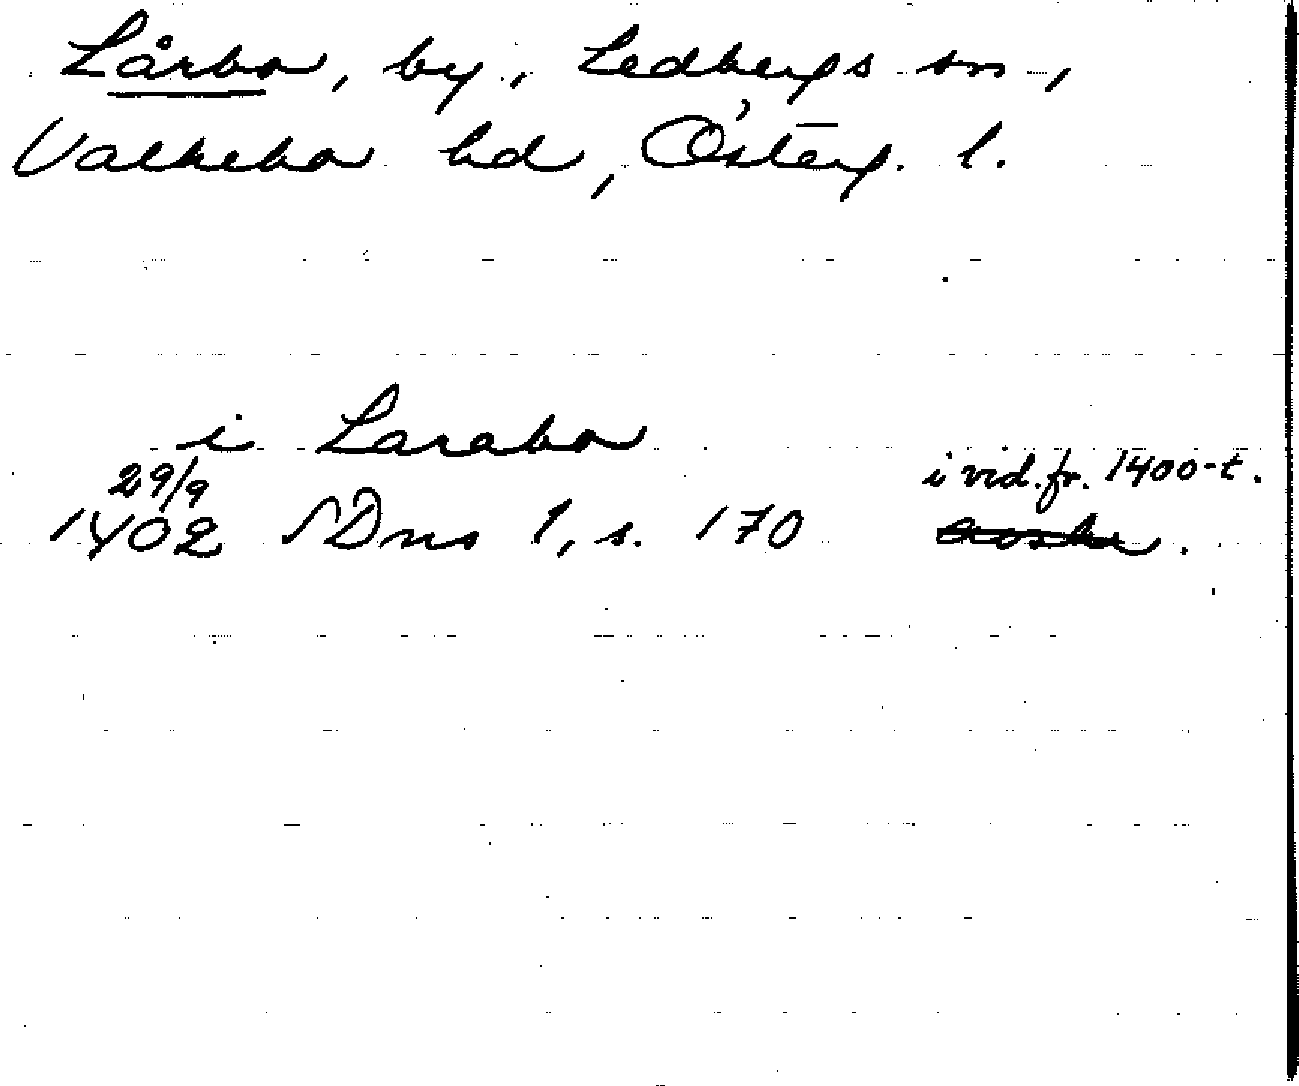 Lårbo, by, Ledbergs sn,
Valkebo hd, Österg. l.
i Larabo
29/9 i vid. fr. 1400-t.
1402 SDns 1, s. 170 avskr.